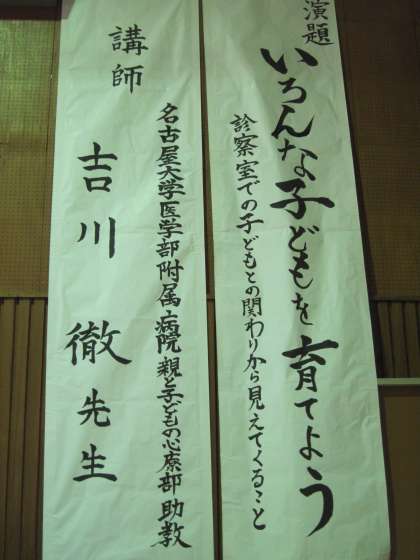 演題
いろんな子どもを育てよう
診察室での子どもとの関わりから見えてくること
名古屋大学医学部附属病院 親と子どもの心療部 助教
講師
吉川 徹 先生